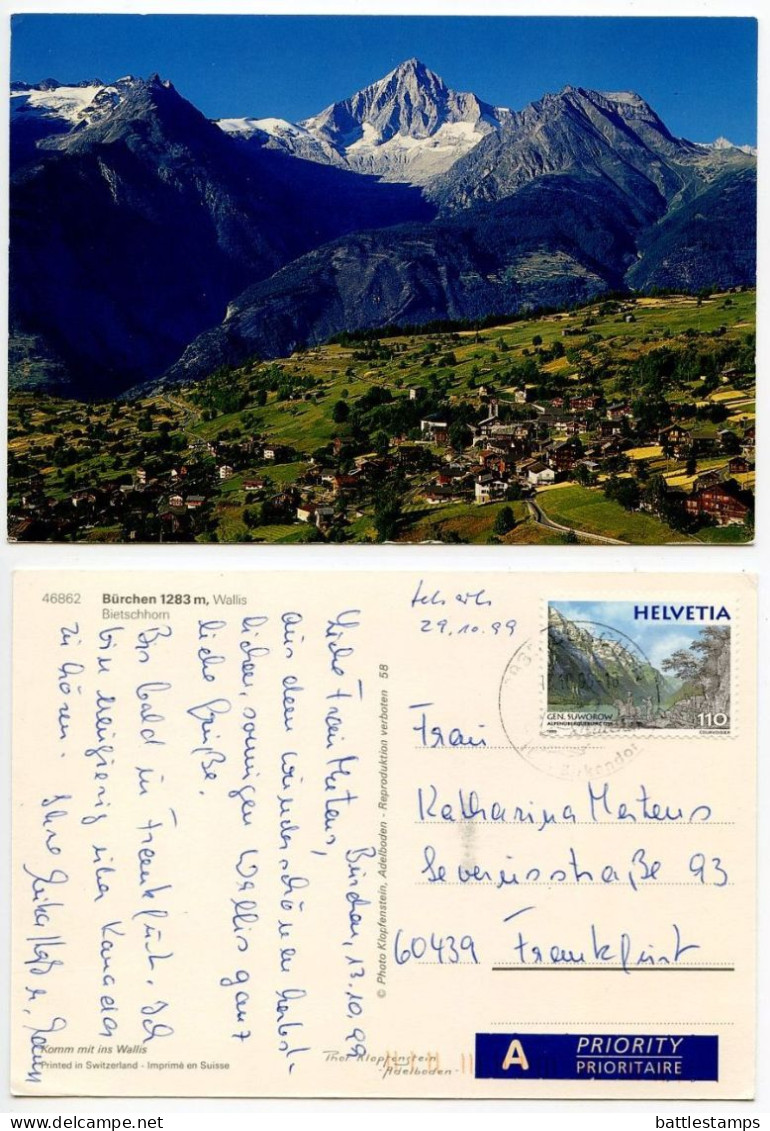 46862 Bürchen 1283 m, Wallis
Bietschhorn
29.10.99
HELVETIA
GEN. SUWOROW
110
Bürchen, 13.10.99
Liebe Frau Mertens,
aus dem wunderschönen herbst-
lichen, sonnigen Wallis ganz
liebe Grüße.
Bis bald in Frankfurt. Ich
bin neugierig über Kanada
zu hören. Ihre
© Photo Klopfenstein, Adelboden - Reproduktion verboten 58
Frau
Katharina Mertens
Severusstraße 93
60439 Frankfurt
Komm mit ins Wallis
Printed in Switzerland - Imprimé en Suisse
Phot Klopfenstein
Adelboden
A PRIORITY
PRIORITAIRE
battlestamps